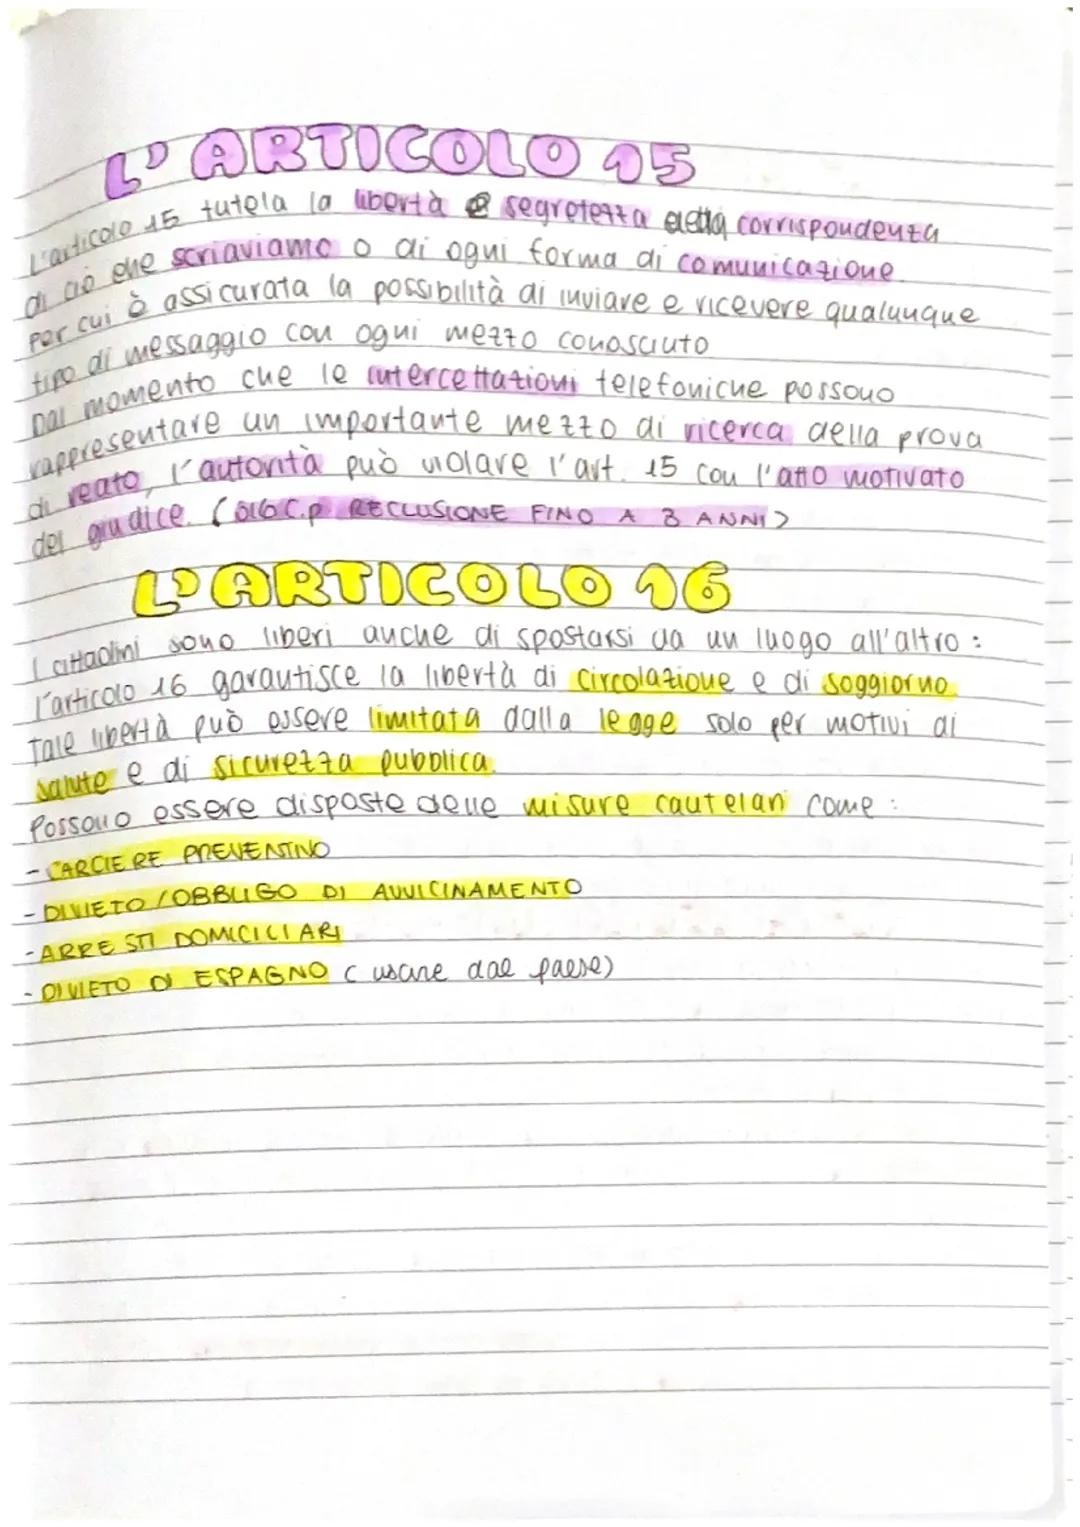 L'ARTICOLO 15
L'articolo 15 tutela la libertà e segretezza della corrispondenza
di ciò che scriaviamo o di ogni forma di comunicazione.
Per cui è assicurata la possibilità di inviare e ricevere qualunque
tipo di messaggio con ogni mezzo conosciuto
Dal momento che le intercettazioni telefoniche possono
rappresentare un importante mezzo di ricerca della prova
di reato, l'autorità può violare l'art. 15 con l'atto motivato
del giudice. (616 C.p RECLUSIONE FINO A 3 ANNI)
L'ARTICOLO 16
I cittadini sono liberi anche di spostarsi da un luogo all'altro:
l'articolo 16 garantisce la libertà di circolazione e di soggiorno.
Tale libertà può essere limitata dalla legge solo per motivi di
salute e di sicurezza pubblica.
Possono essere disposte delle misure cautelari come:
- CARCIERE PREVENTINO
- DIVIETO/OBBLIGO DI AVVICINAMENTO
- ARRESTI DOMICILIARI
- DIVIETO DI ESPAGNO (uscire dal paese)